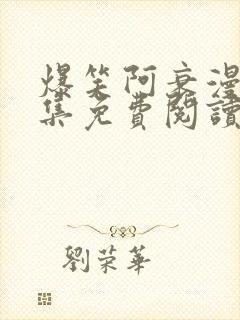 爆笑阿衰漫
集免費閱讀
劉荣華